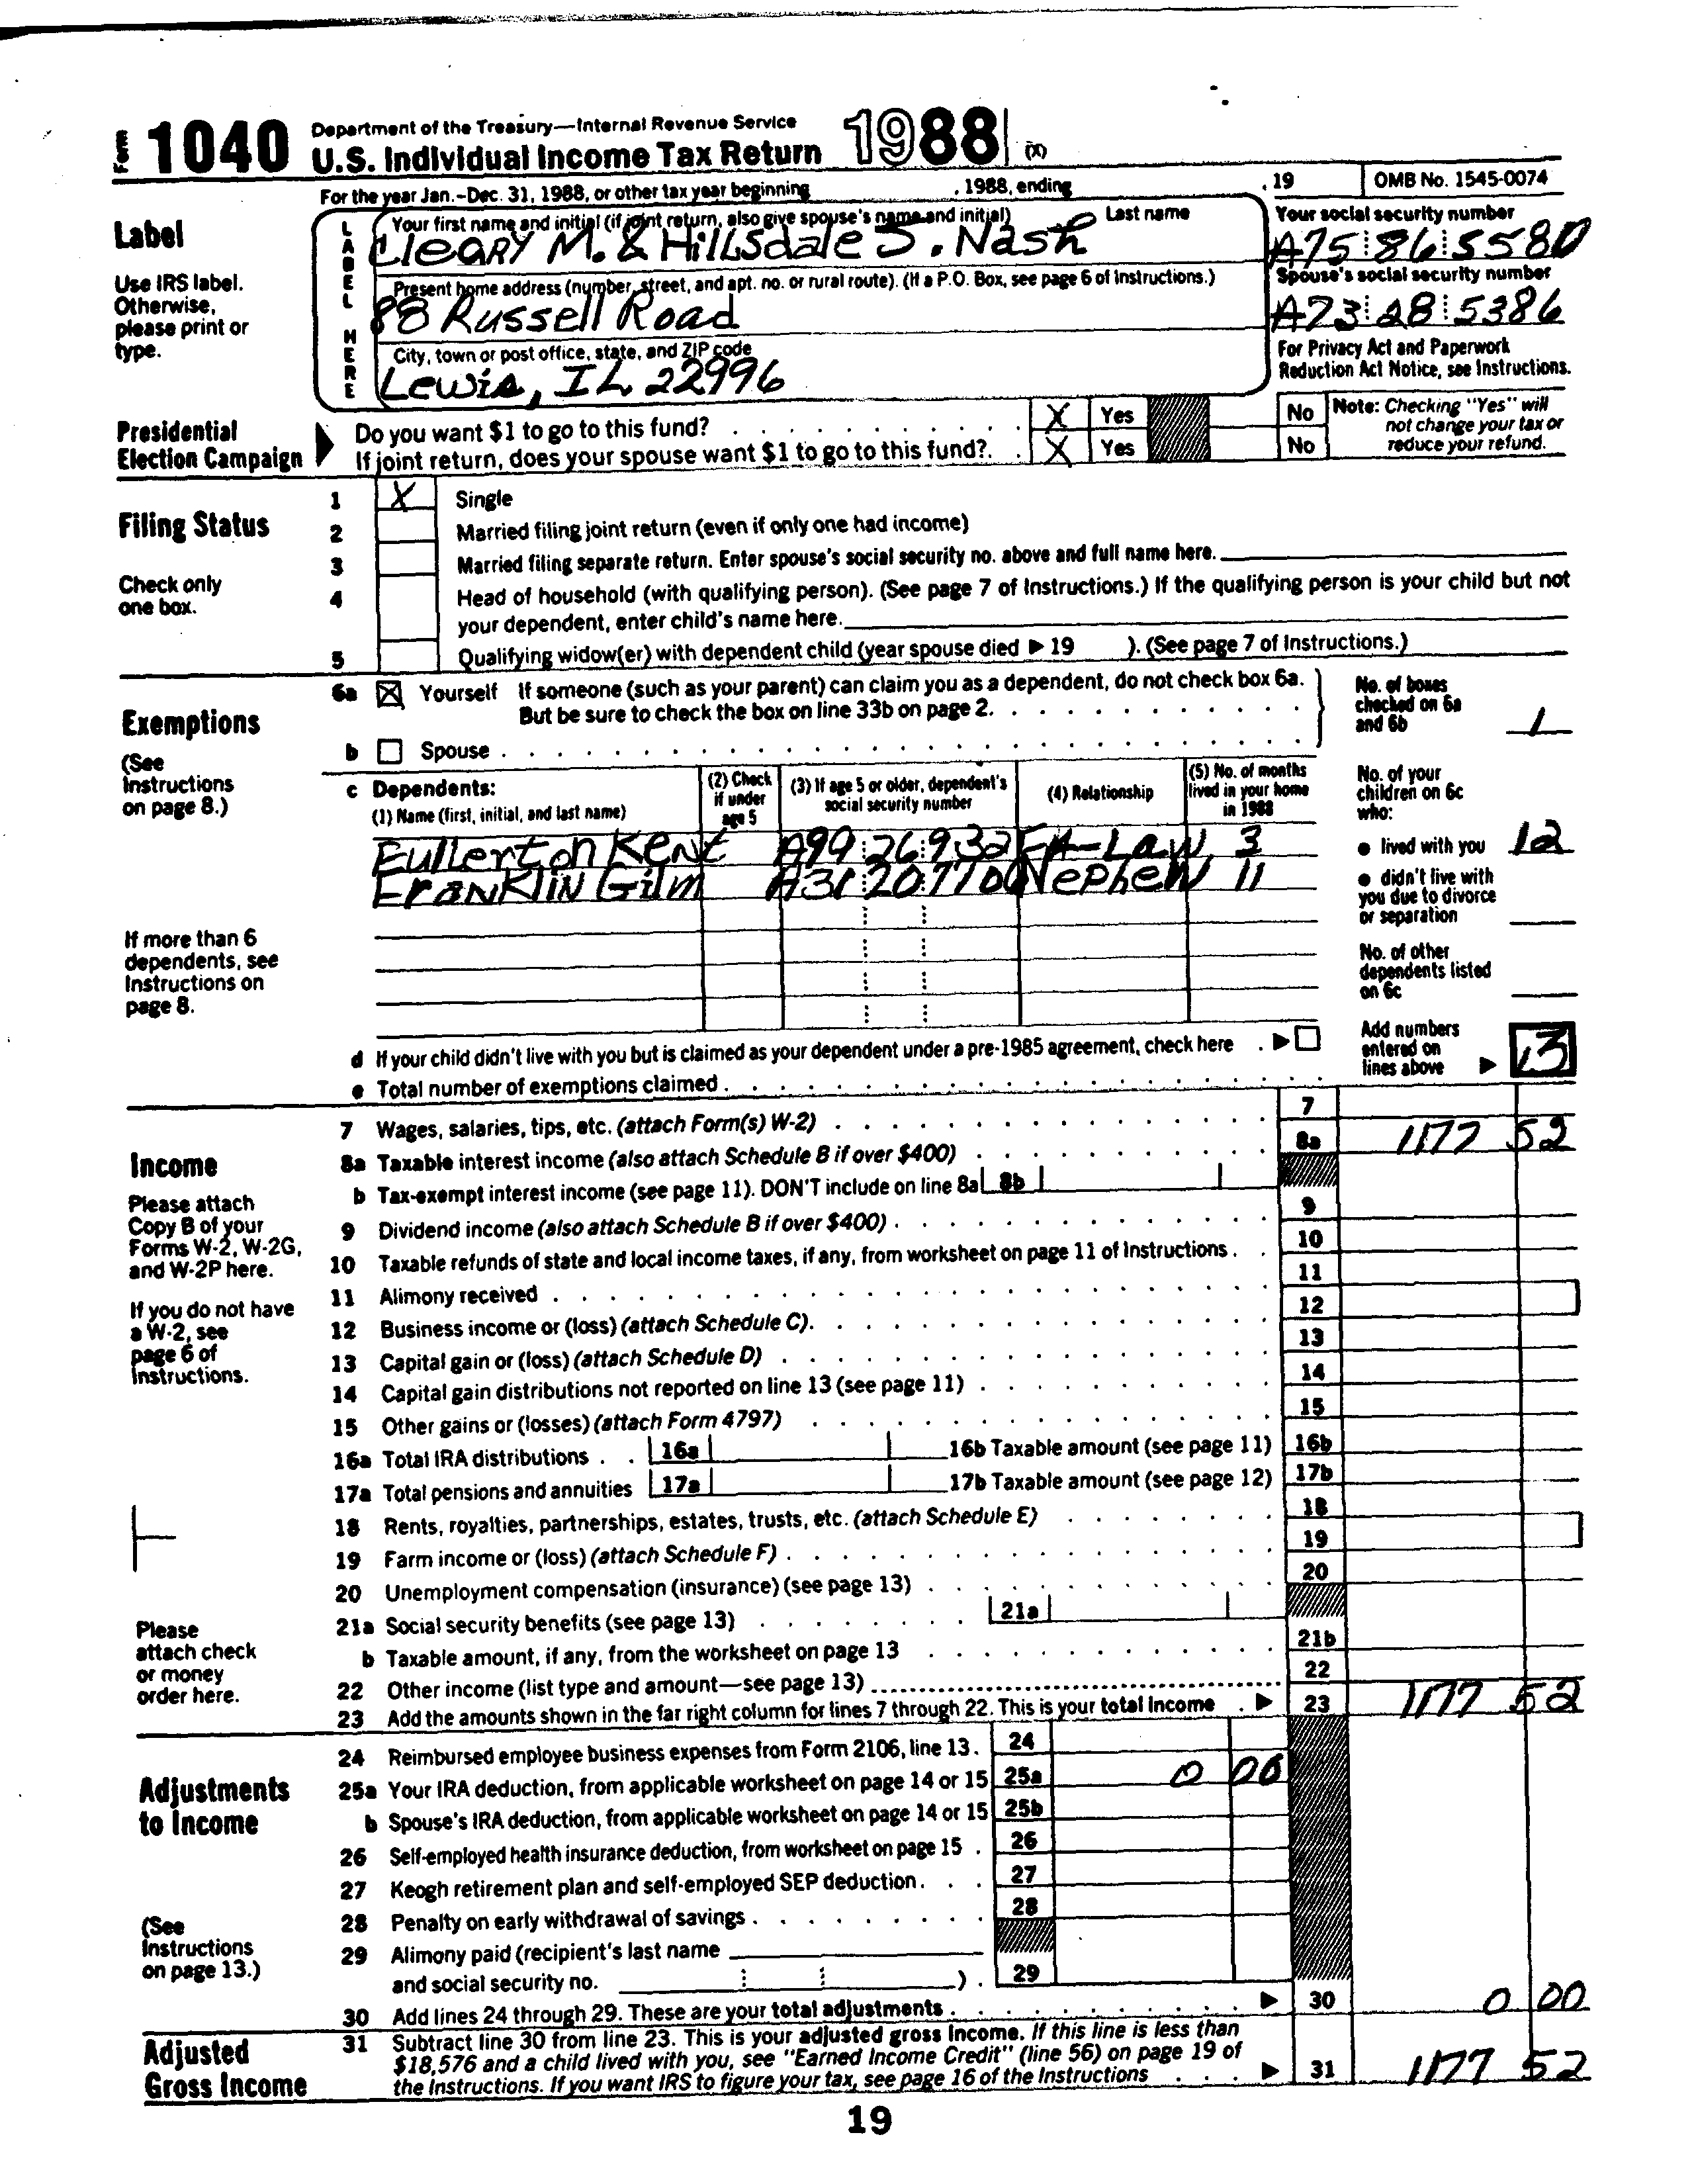 Form 1040 Department of the Treasury—Internal Revenue Service
U.S. Individual Income Tax Return 1988 (X)
For the year Jan.–Dec. 31, 1988, or other tax year beginning , 1988, ending , 19 OMB No. 1545-0074
Label
Use IRS label.
Otherwise,
please print or
type.
LABEL HERE
Your first name and initial (if joint return, also give spouse's name and initial) Last name
Cleary M. & Hillsdale J. Nash
Your social security number
A75 86 5580
Present home address (number, street, and apt. no. or rural route). (If a P.O. Box, see page 6 of Instructions.)
88 Russell Road
Spouse's social security number
A73 28 5386
City, town or post office, state, and ZIP code
Lewis, IL 22996
For Privacy Act and Paperwork
Reduction Act Notice, see Instructions.
Presidential
Election Campaign
Do you want $1 to go to this fund? X Yes No
If joint return, does your spouse want $1 to go to this fund?. X Yes No
Note: Checking "Yes" will
not change your tax or
reduce your refund.
Filing Status
Check only
one box.
1 X Single
2 Married filing joint return (even if only one had income)
3 Married filing separate return. Enter spouse's social security no. above and full name here.
4 Head of household (with qualifying person). (See page 7 of Instructions.) If the qualifying person is your child but not
your dependent, enter child's name here.
5 Qualifying widow(er) with dependent child (year spouse died ▶ 19 ). (See page 7 of Instructions.)
Exemptions
(See
Instructions
on page 8.)
6a ☒ Yourself If someone (such as your parent) can claim you as a dependent, do not check box 6a.
But be sure to check the box on line 33b on page 2.
b ☐ Spouse
No. of boxes
checked on 6a
and 6b 1
c Dependents:
(1) Name (first, initial, and last name)
(2) Check
if under
age 5
(3) If age 5 or older, dependent's
social security number
(4) Relationship
(5) No. of months
lived in your home
in 1988
Fullerton Kent A99 26 932 FA-Law 3
Franklin Gilm A31 20 7700 Nephew 11
If more than 6
dependents, see
Instructions on
page 8.
No. of your
children on 6c
who:
● lived with you 12
● didn't live with
you due to divorce
or separation
No. of other
dependents listed
on 6c
Add numbers
entered on
lines above ▶ 13
d If your child didn't live with you but is claimed as your dependent under a pre-1985 agreement, check here ▶ ☐
e Total number of exemptions claimed
Income
Please attach
Copy B of your
Forms W-2, W-2G,
and W-2P here.
If you do not have
a W-2, see
page 6 of
Instructions.
Please
attach check
or money
order here.
7 Wages, salaries, tips, etc. (attach Form(s) W-2) 7
8a Taxable interest income (also attach Schedule B if over $400) 8a 1177 52
b Tax-exempt interest income (see page 11). DON'T include on line 8a 8b
9 Dividend income (also attach Schedule B if over $400) 9
10 Taxable refunds of state and local income taxes, if any, from worksheet on page 11 of Instructions 10
11 Alimony received 11
12 Business income or (loss) (attach Schedule C) 12
13 Capital gain or (loss) (attach Schedule D) 13
14 Capital gain distributions not reported on line 13 (see page 11) 14
15 Other gains or (losses) (attach Form 4797) 15
16a Total IRA distributions 16a 16b Taxable amount (see page 11) 16b
17a Total pensions and annuities 17a 17b Taxable amount (see page 12) 17b
18 Rents, royalties, partnerships, estates, trusts, etc. (attach Schedule E) 18
19 Farm income or (loss) (attach Schedule F) 19
20 Unemployment compensation (insurance) (see page 13) 20
21a Social security benefits (see page 13) 21a
b Taxable amount, if any, from the worksheet on page 13 21b
22 Other income (list type and amount—see page 13) 22
23 Add the amounts shown in the far right column for lines 7 through 22. This is your total income ▶ 23 1177 52
Adjustments
to Income
(See
Instructions
on page 13.)
24 Reimbursed employee business expenses from Form 2106, line 13. 24
25a Your IRA deduction, from applicable worksheet on page 14 or 15 25a 0 00
b Spouse's IRA deduction, from applicable worksheet on page 14 or 15 25b
26 Self-employed health insurance deduction, from worksheet on page 15 26
27 Keogh retirement plan and self-employed SEP deduction 27
28 Penalty on early withdrawal of savings 28
29 Alimony paid (recipient's last name
and social security no. ) 29
30 Add lines 24 through 29. These are your total adjustments ▶ 30 0 00
Adjusted
Gross Income
31 Subtract line 30 from line 23. This is your adjusted gross income. If this line is less than
$18,576 and a child lived with you, see "Earned Income Credit" (line 56) on page 19 of
the Instructions. If you want IRS to figure your tax, see page 16 of the Instructions ▶ 31 1177 52
19